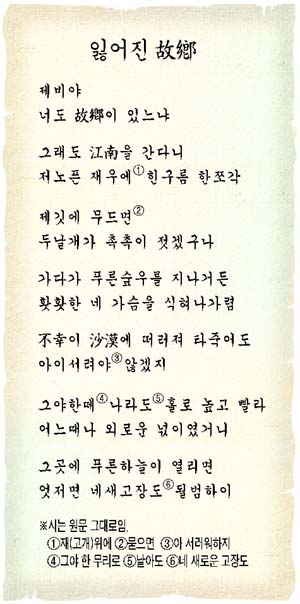 잃어진 故鄕
제비야
너도 故鄕이 있느냐
그래도 江南을 간다니
저노픈 재우에① 힌구름 한쪼각
제깃에 무드면②
두날개가 촉촉이 젓겠구나
가다가 푸른숲우를 지나거든
홧홧한 네 가슴을 식혀나가렴
不幸이 沙漠에 떠러져 타죽어도
아이서려야③ 않겠지
그야한떼④ 나라도⑤ 홀로 높고 빨라
어느때나 외로운 넋이였거니
그곳에 푸른하늘이 열리면
엇저면 네새고장도⑥ 될범하이
※시는 원문 그대로임.
①재(고개)위에 ②묻으면 ③아 서러워하지
④그야 한 무리로 ⑤날아도 ⑥네 새로운 고장도